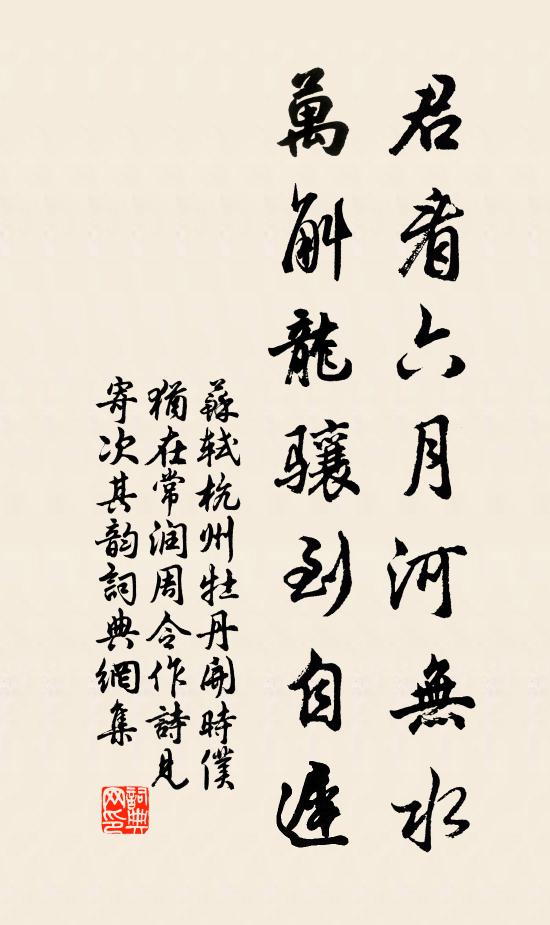 君看六月河無水
萬斛龍驤到自遲
蘇軾杭州牡丹開時僕
猶在常润周令作詩見
寄次其韵詞典網集
詞典网印